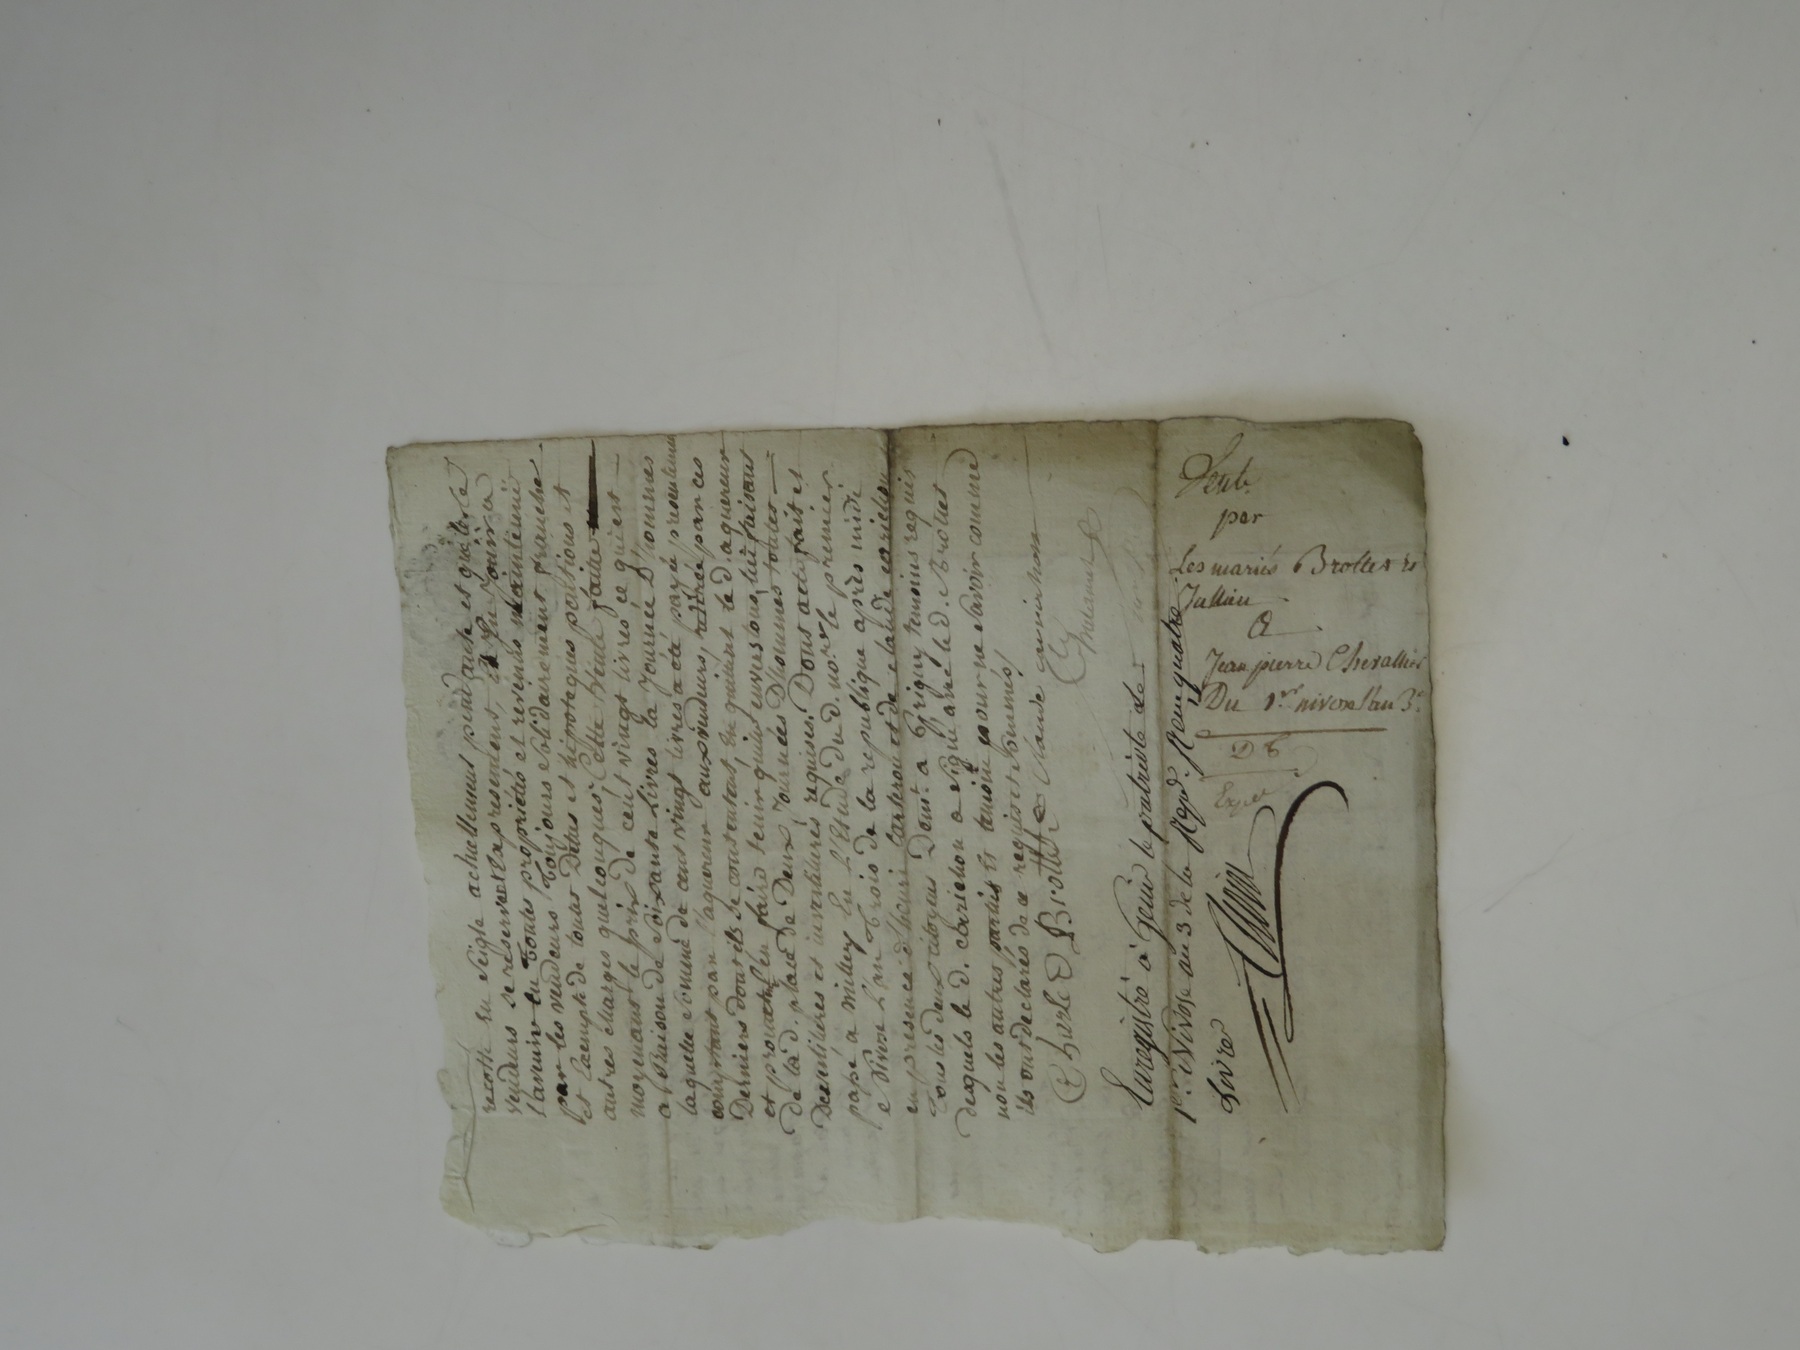 recolte en seigle actuellement pendante et que les d
vendeurs se reservent expressement, a en jouir a
l'avenir en toutes propriété et revenus maintenue
par les vendeurs toujours solidairement franche
et exempte de toutes Dettes et hipoteques pensions et
autres charges quelconques, Cette vente faitte
moyenant le prix de cent vingt livres ce qui est
a Raison de Soixante Livres la Journée D'hommes
laquelle somme de cent vingt livres a été payée presentement
comptant par l'aquereur aux vendeurs, retirée par ces
Derniers dont ils se contentent, en quittent le d. aquereur
et promettent l'en faire tenir quitte envers tous, lui faisant
de la d. place de Deux Journées D'hommes toutes
Desmentieres et investitures requises. Dont acte fait et
passé a millery En L'Etude du d. no.re le premier
Nivose L'an trois de la republique après midi
en presence d'henri Carteron et de claude corichon
tous les deux citoyens Dem.t a Grigny temoins requis
desquels le d. corichon a signé avec le d. Brottet
non les autres parties et temoin pour ne savoir comme
ils ont declarés de ce requis et sommés
Charle Brottet Claude
Enregistré à Genis le patriote le
1er. Nivose an 3 de la Rep. Reçu quatre
Livre
Vente
par
Les mariés Brottet et
Jullien
A
Jean pierre Chevallier
Du 1er nivose l'an 3e
Expée